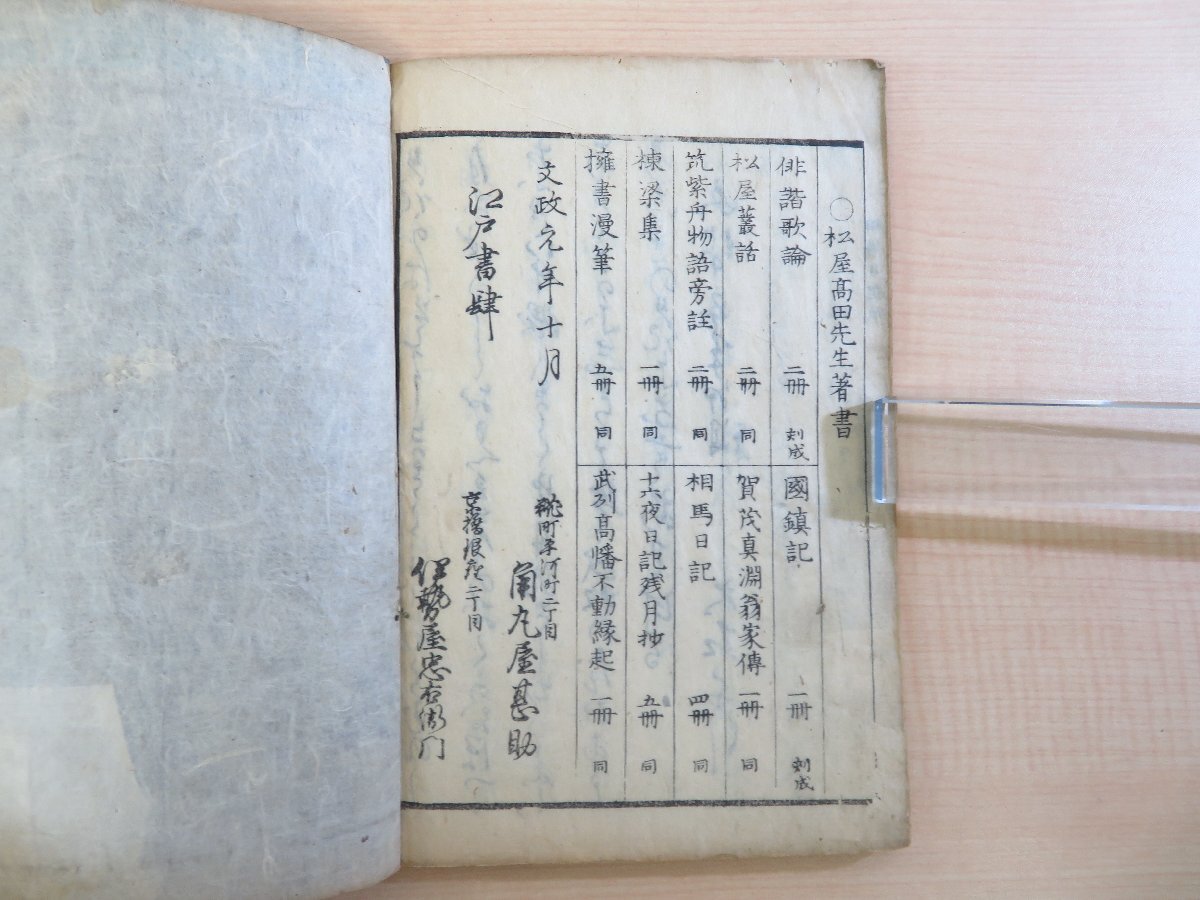 〇松屋高田先生著書
俳諧歌論 二冊 刻成
國鎮記 一冊 刻成
松屋叢話 二冊 同
賀茂真淵翁家傳 一冊 同
筑紫舟物語旁註 二冊 同
相馬日記 四冊 同
棟梁集 一冊 同
十六夜日記残月抄 五冊 同
擁書漫筆 五冊 同
武列高幡不動縁起 一冊 同
文政元年十月
江戸書肆
麹町平河町二丁目
角丸屋甚助
京橋銀座二丁目
伊勢屋忠右衛門